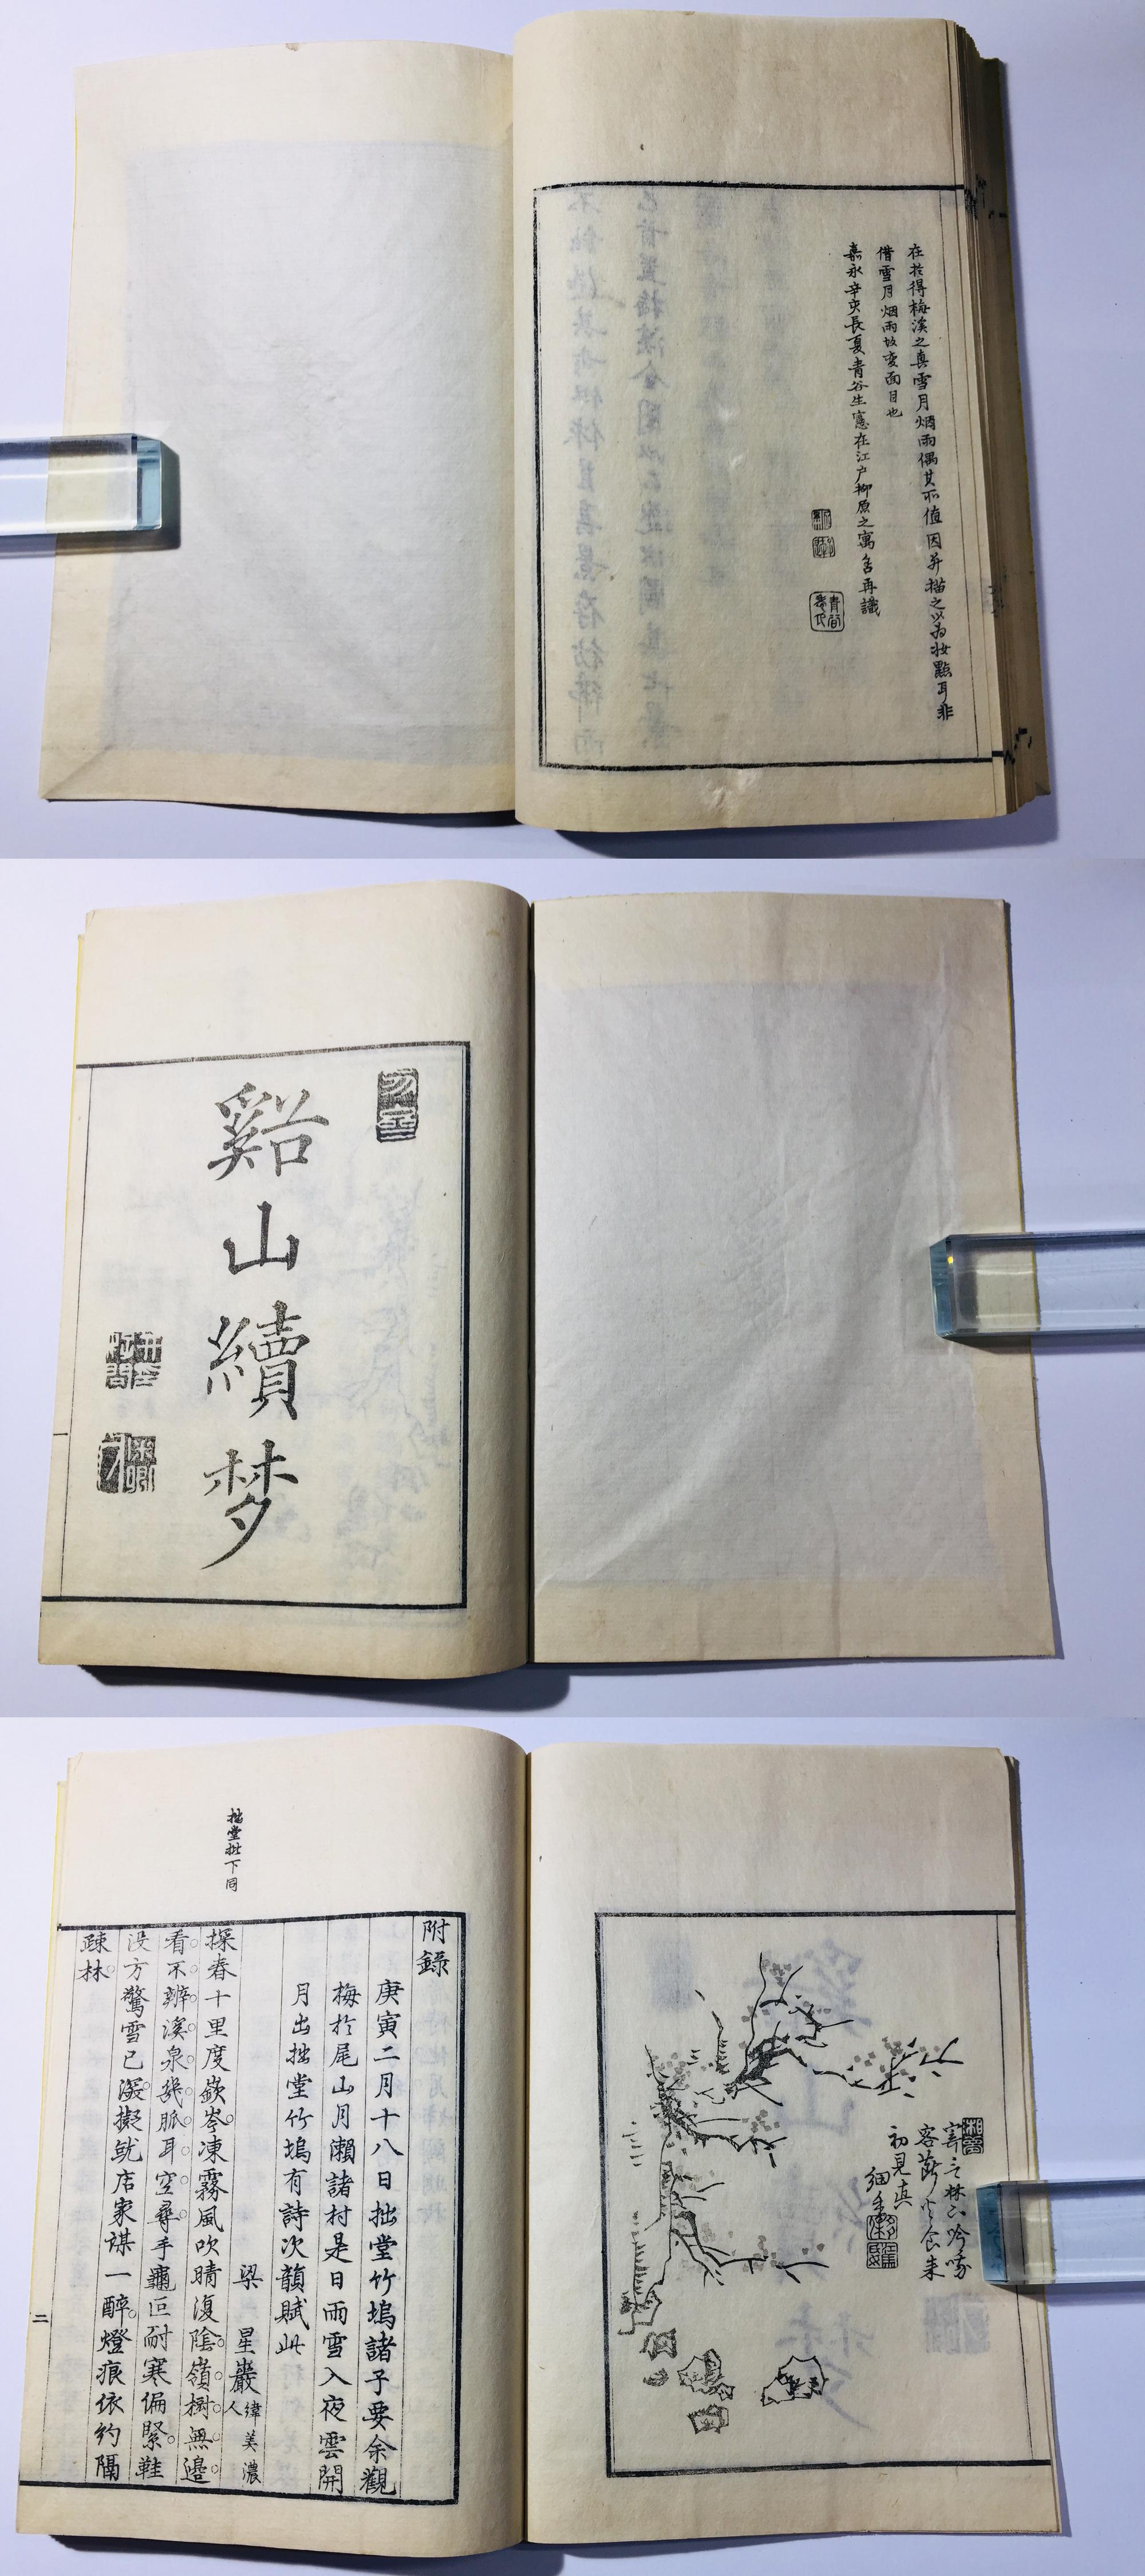 在於得梅溪之真雪月烟雨偶其所值因并描之以為妝點耳非
借雪月烟雨故変面目也
嘉永辛亥長夏青谷生憲在江戸柳原之寓舎再識
谿山續梦
寄
客
初見真
細香
拙堂批下同
附錄
庚寅二月十八日拙堂竹塢諸子要余觀
梅於尾山月瀨諸村是日雨雪入夜雲開
月出拙堂竹塢有詩次韻賦此
梁星巖緯美濃人
探春十里度嶔岑凍霧風吹晴復陰嶺樹無邊
看不辨溪泉幾脈耳空尋手龜叵耐寒偏緊鞋
沒方驚雪已深擬就店家謀一醉燈痕依約隔
疎林
二